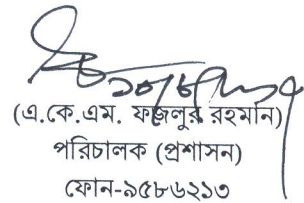 (এ.কে.এম. ফজলুর রহমান)
পরিচালক (প্রশাসন)
ফোন-৯৫৮৬২১৩